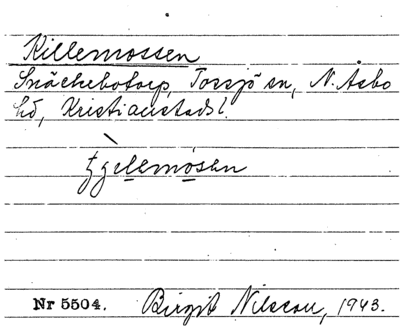 Killemossen
Snäckebotorp, Tossjö sn, N. Åsbo
hd, Kristianstads l.
Nr 5504. Birgit Nilsson, 1943.